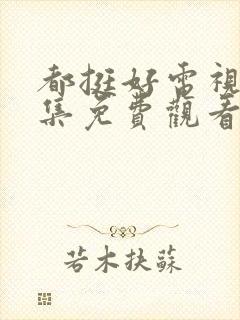 都挺好電視
集免費觀看
若木扶蘇